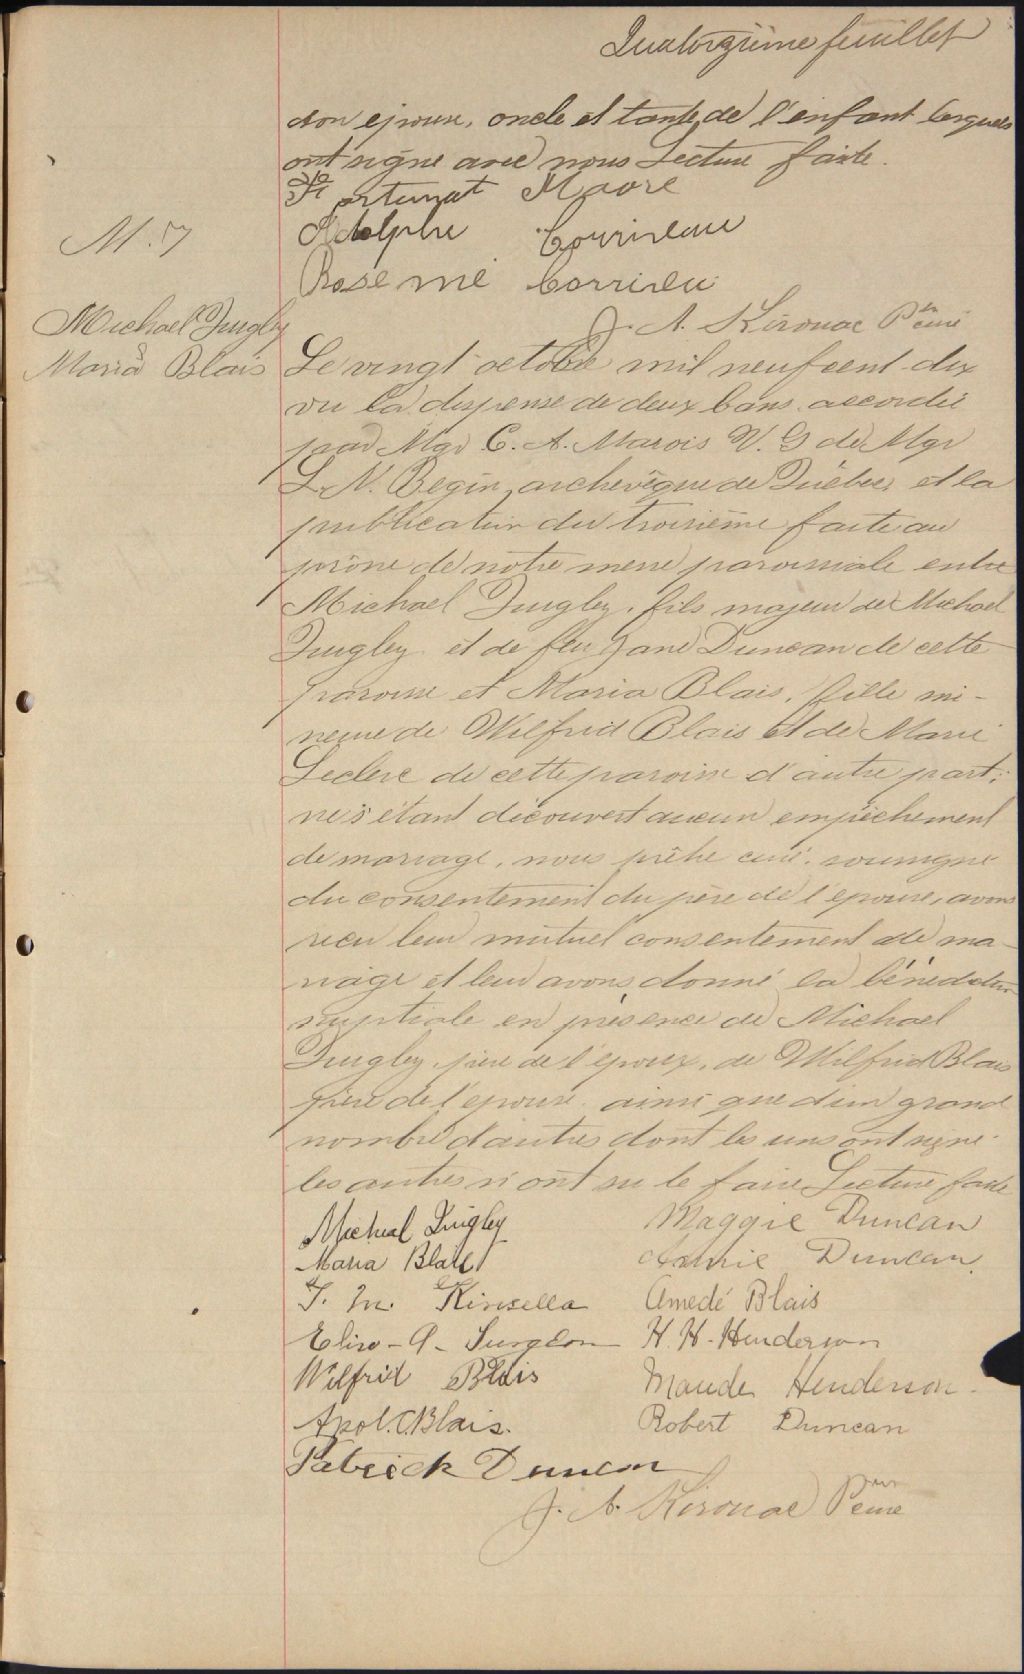 Quatorzième feuillet
son epouse, oncle et tante de l'enfant lesquels
ont signé avec nous Lecture faite.
Fortunat Moore
Adolphe Courriveau
Rose mé Corriveu
J. A. Kirouac Ptre curé
M. 7
Michael Quigley
&
Maria Blais
Le vingt octobre mil neuf cent dix
vu la dispense de deux bans accordée
par Mgr C. A. Marois V. G de Mgr
L. N. Begin, archevêque de Québec, et la
publication du troisième faite au
prône de notre messe paroissiale entre
Michael Quigley, fils majeur de Michael
Quigley et de feu Jane Duncan de cette
paroisse et Maria Blais, fille mi-
neure de Wilfrid Blais et de Marie
Leclerc de cette paroisse d'autre part;
ne s'étant découvert aucun empêchement
de mariage, nous prêtre curé soussigné
du consentement du père de l'epouse, avons
recu leur mutuel consentement de ma-
riage et leur avons donné la bénédiction
nuptiale en présence de Michael
Quigley, père de l'époux, de Wilfrid Blais
père de l'epouse ainsi que d'un grand
nombre d'autres dont les uns ont signé
les autres n'ont su le faire Lecture faite
Micheal Quigley Maggie Duncan
Maria Blais Annie Duncan
T. M. Kinsella Amedé Blais
Elise-A-Surgeon H. H. Henderson
Wilfrid Blais Maude Henderson
Apol. C. Blais. Robert Duncan
Patrick Duncan
J. A. Kirouac Ptre curé